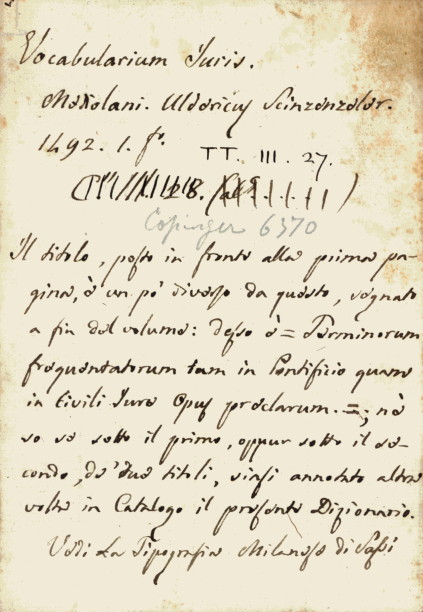 Vocabularium Juris.
Mediolani. Uldericus Scinzenzeler.
1492. 1. f.º
TT. III. 27.
Copinger 6370
Il titolo, posto in fronte alla prima pa-
gina, è un pò diverso da questo, segnato
a fin del volume: desso è = Terminorum
frequentatorum tam in Pontificio quam
in Civili Jure Opus praeclarum. =; nè
so se sotto il primo, oppur sotto il se-
condo, de' due titoli, siasi annotato altre
volte in Catalogo il presente Dizionario.
Vedi La Tipografia Milanese di Sassi